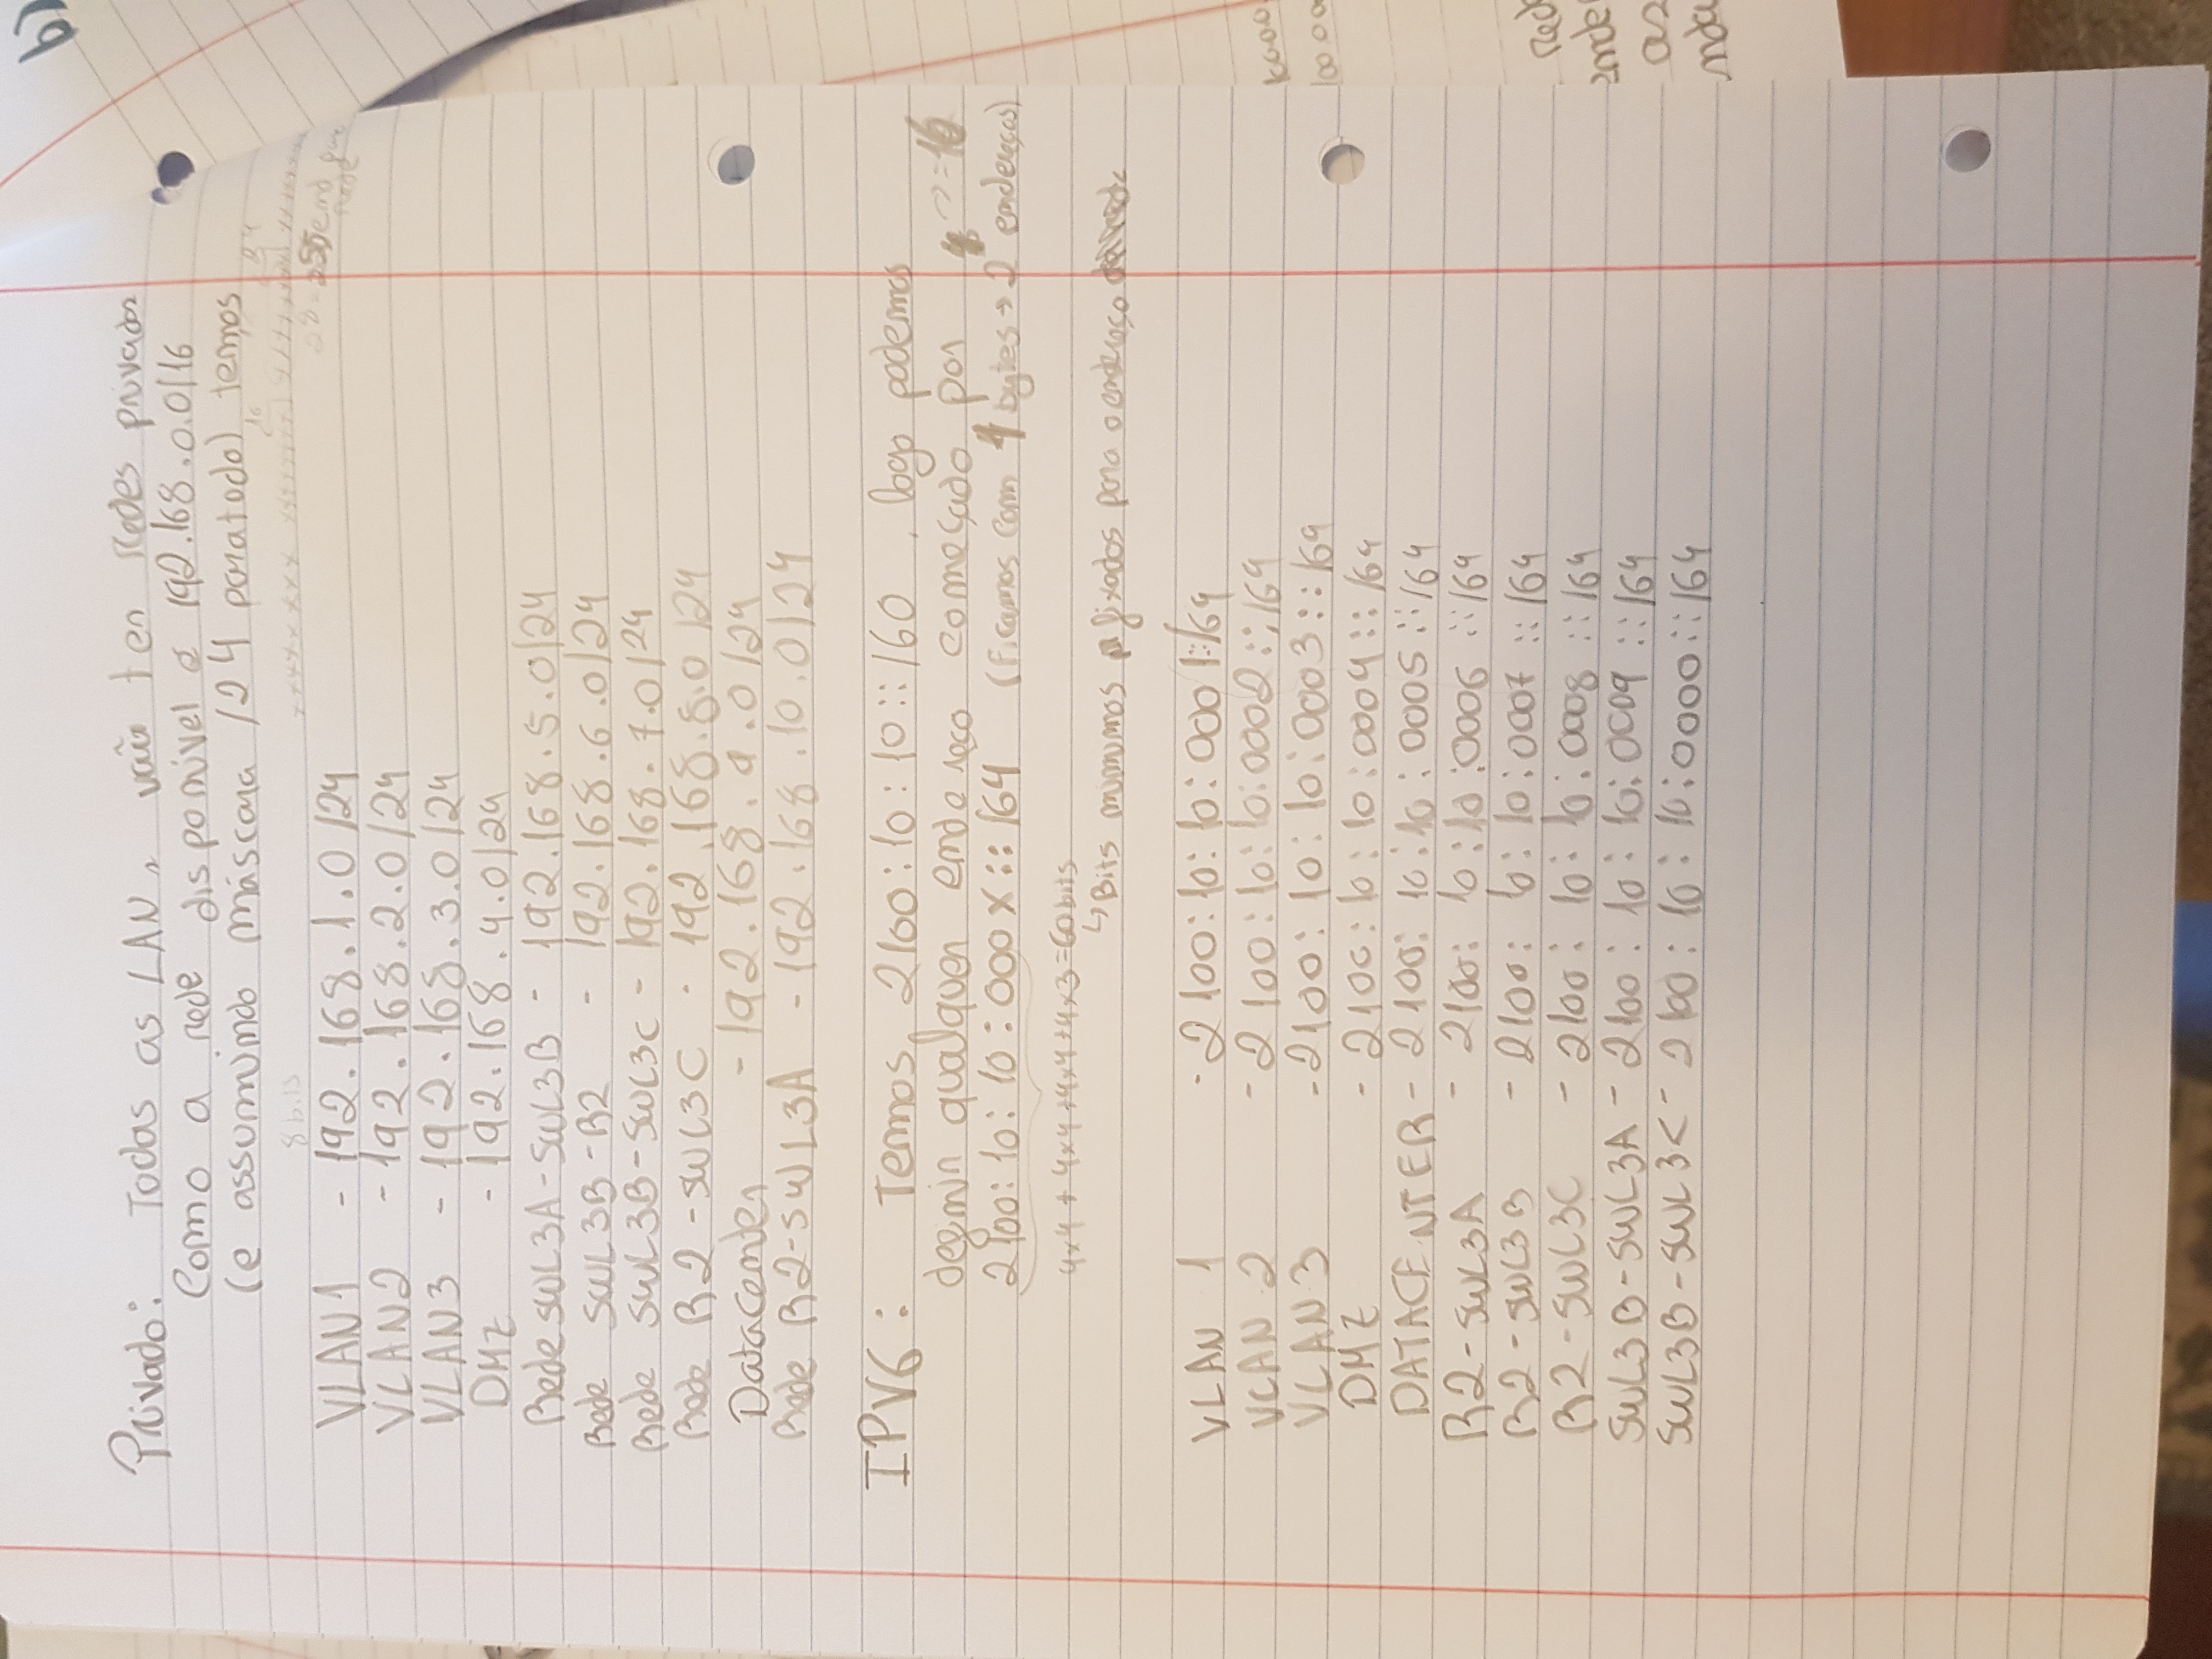 b)
Privado: Todas as LAN, vão ter redes privadas
Como a rede disponível é 192.168.0.0/16
(e assumimdo máscara /24 para todo) temos
8 bits
VLAN1 - 192.168.1.0/24
VLAN2 - 192.168.2.0/24
VLAN3 - 192.168.3.0/24
DMZ - 192.168.4.0/24
Rede SWL3A-SWL3B - 192.168.5.0/24
Rede SWL3B-R2 - 192.168.6.0/24
Rede SWL3B-SWL3C - 192.168.7.0/24
Rede R2-SWL3C - 192.168.8.0/24
Datacenter - 192.168.9.0/24
Rede R2-SWL3A - 192.168.10.0/24
IPV6: Temos 2100:10:10:10::/60, logo podemos
definir qualquer endereço começado por
2100:10:10:10:000X::/64 (Ficamos com 4 bytes → 2 endereços) = 16
4x4+4x4+4x4+4x3=60bits
↳Bits minimos fixados para o endereço
VLAN 1 - 2100:10:10:0001::/64
VLAN 2 - 2100:10:10:0002::/64
VLAN 3 - 2100:10:10:0003::/64
DMZ - 2100:10:10:0004::/64
DATACENTER - 2100:10:10:0005::/64
R2-SWL3A - 2100:10:10:0006::/64
R2-SWL3B - 2100:10:10:0007::/64
R2-SWL3C - 2100:10:10:0008::/64
SWL3B-SWL3A - 2100:10:10:0009::/64
SWL3B-SWL3C - 2100:10:10:0000::/64